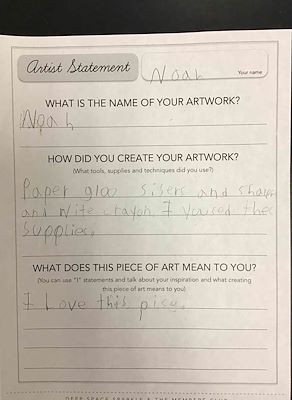 Artist Statement
Noah
Your name
WHAT IS THE NAME OF YOUR ARTWORK?
Noah
HOW DID YOU CREATE YOUR ARTWORK?
(What tools, supplies and techniques did you use?)
Paper gloo sisers and
and Wite crayon. I yoused thes
Supplies.
WHAT DOES THIS PIECE OF ART MEAN TO YOU?
(You can use "I" statements and talk about your inspiration and what creating
this piece of art means to you)
I Love this pise.
DEEP SPACE SPARKLE & THE MEMBERS CLUB